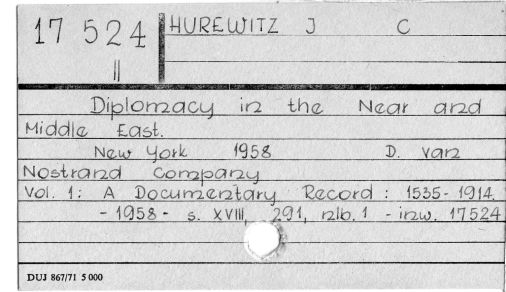 17 524 HUREWITZ J C
II
Diplomacy in the Near and
Middle East.
New York 1958 D. van
Nostrand Company
Vol. 1: A Documentary Record : 1535-1914.
- 1958 - s. XVIII, 291, nlb. 1 - inw. 17524
DUJ 867/71 5 000